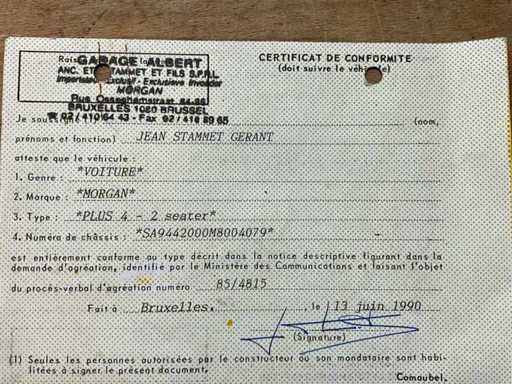 GARAGE ALBERT
ANC. ETS STAMMET ET FILS S.P.R.L.
Importateur Exclusif - Exclusieve Invoerder
MORGAN
BRUXELLES 1080 BRUSSEL
CERTIFICAT DE CONFORMITE
(doit suivre le véhicule)
Je soussigné (nom,
prénoms et fonction) JEAN STAMMET GERANT
atteste que le véhicule :
1. Genre : *VOITURE*
2. Marque : *MORGAN*
3. Type : *PLUS 4 - 2 seater*
4. Numéro de châssis : *SA9442000M8004079*
est entièrement conforme au type décrit dans la notice descriptive figurant dans la
demande d'agréation, identifié par le Ministère des Communications et faisant l'objet
du procès-verbal d'agréation numéro 85/4815
Fait à Bruxelles, , le 13 juin 1990
(Signature)
(1) Seules les personnes autorisées par le constructeur ou son mandataire sont habi-
litées à signer le présent document.
Comaubel.